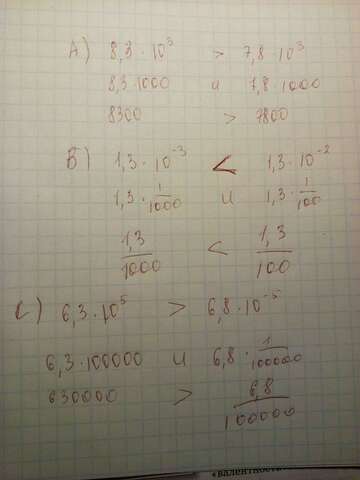 А) 8,3 · 10³ > 7,8 · 10³
8,3 · 1000 и 7,8 · 1000
8300 > 7800
Б) 1,3 · 10⁻³ < 1,3 · 10⁻²
1,3 · 1/1000 и 1,3 · 1/100
1,3/1000 < 1,3/100
С) 6,3 · 10⁵ > 6,8 · 10⁻⁵
6,3 · 100000 и 6,8 · 1/100000
630000 > 6,8/100000
«валентность